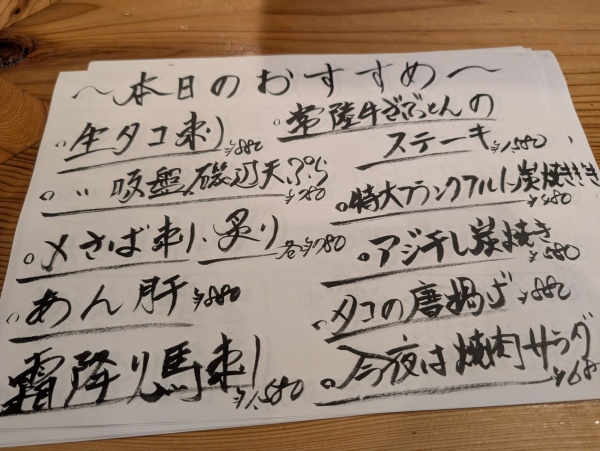 〜本日のおすすめ〜
○生タコ刺し ¥880
○〃吸盤磯辺天ぷら ¥780
○〆さば刺し、炙り 各¥780
○あん肝 ¥880
霜降り馬刺し ¥1,580
○常陸牛ざぶとんの
ステーキ ¥1,580
○特大フランクフルト炭焼き
○アジ干し炭焼き ¥580
○タコの唐揚げ ¥880
○今夜は焼肉サラダ